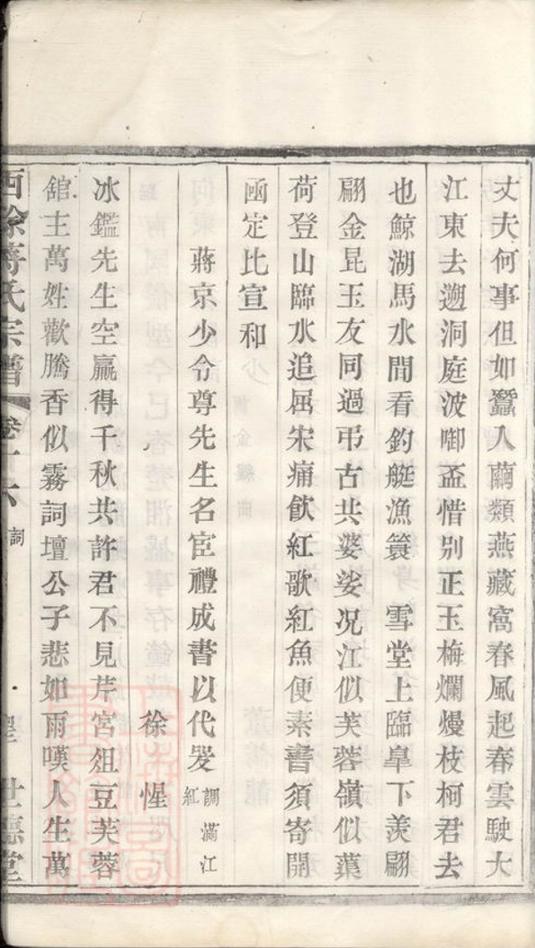 丈夫何事但如蠶入繭類燕藏窩春風起春雲駛大
江東去遡洞庭波啣盃惜别正玉梅爛熳枝柯君去
也鯨湖馬水間看釣艇漁簑　雪堂上臨臯下羨翩
翩金昆玉友同過弔古共婆娑况江似芙蓉嶺似葉
荷登山臨水追屈宋痛飲紅歌紅魚便素書須寄開
函定比宣和
蔣京少令尊先生名宦禮成書以代爰 調滿江紅
徐惺
冰鑑先生空贏得千秋共許君不見芹宮俎豆芙蓉
舘主萬姓歡騰香似霧詞壇公子悲如雨嘆人生萬
西徐蔣氏宗譜 卷十六 詞 世德堂